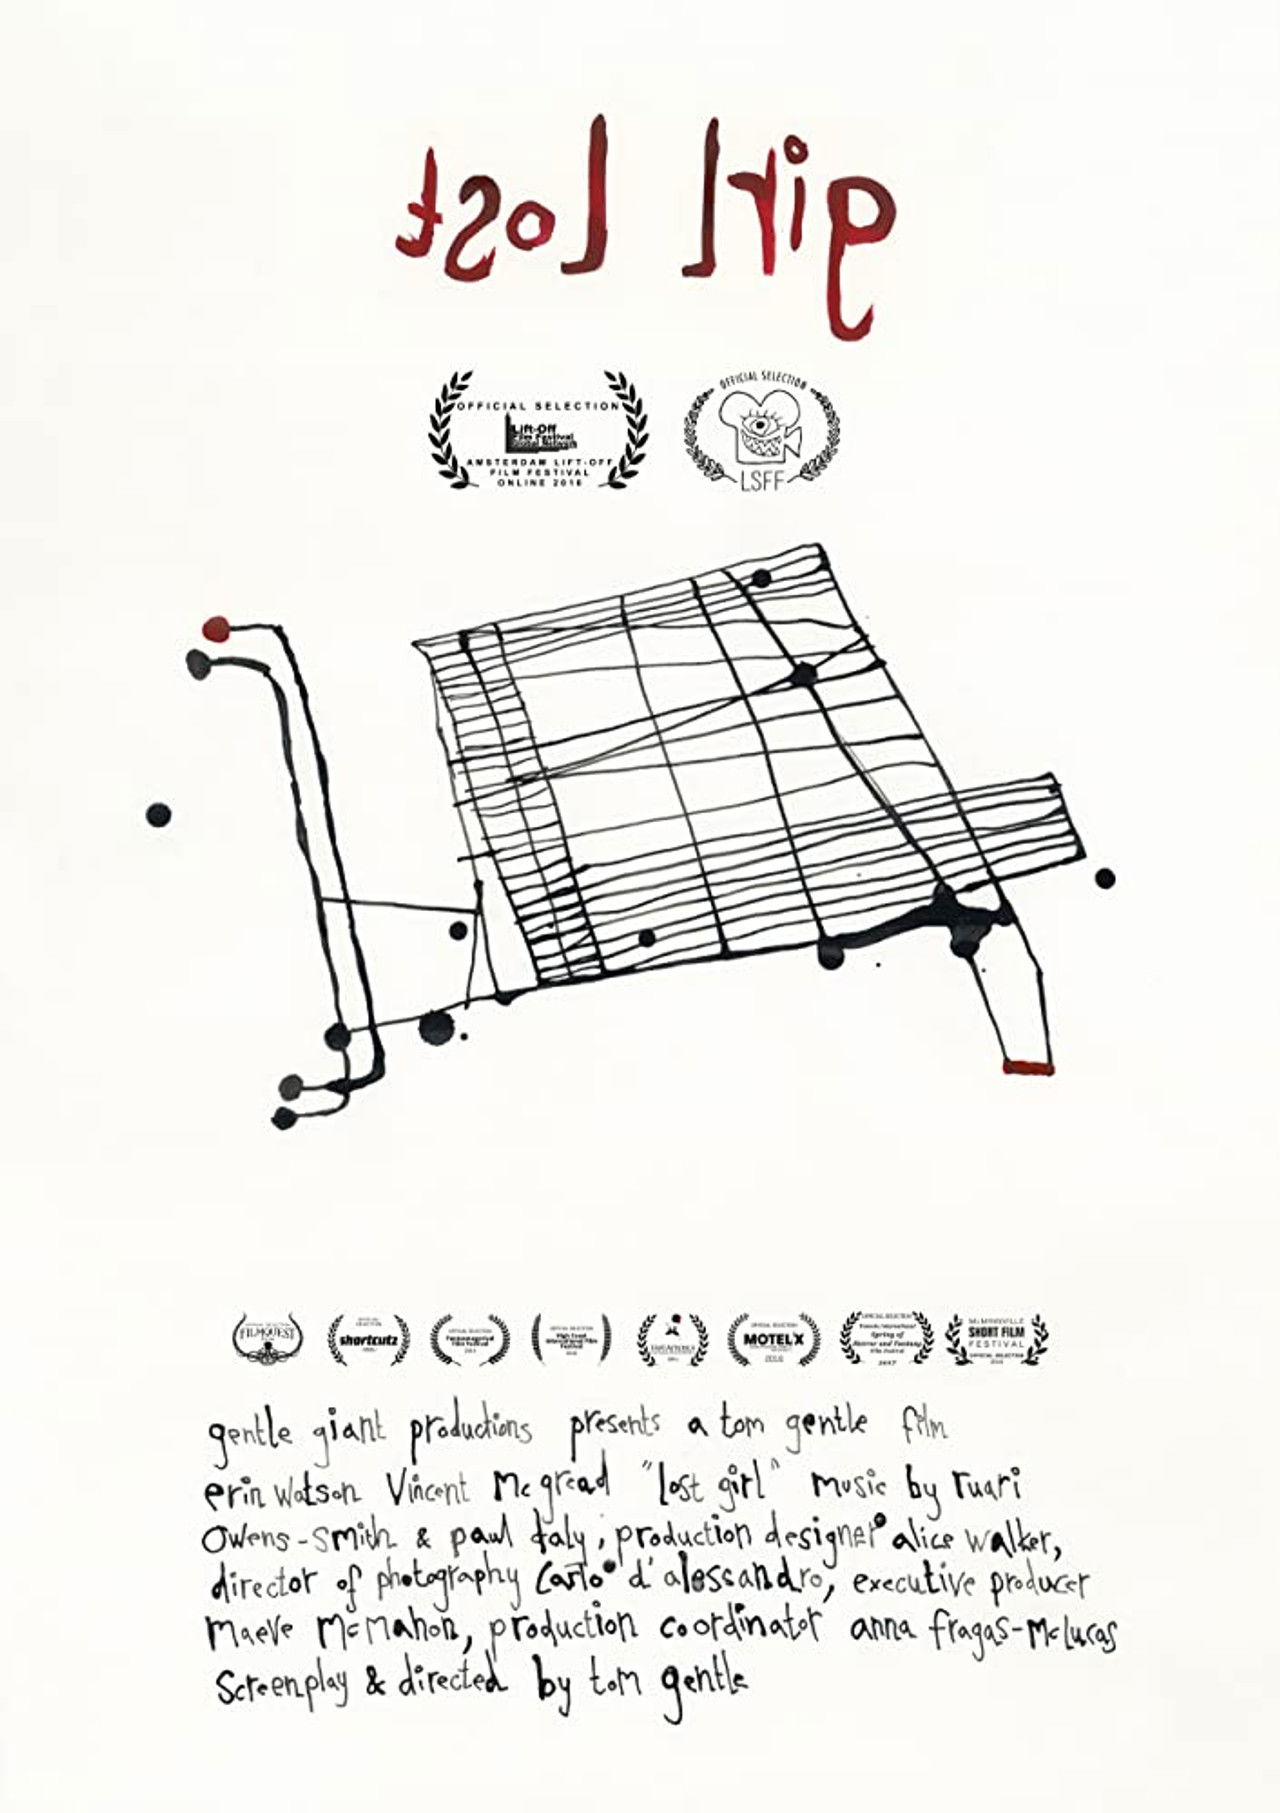 lost girl
OFFICIAL SELECTION
Lift-Off
Film Festival
Global Network
AMSTERDAM LIFT-OFF
FILM FESTIVAL
ONLINE 2016
OFFICIAL SELECTION
LSFF
FILMQUEST
shortcutz
OFFICIAL SELECTION
MOTELX
2016
OFFICIAL SELECTION
Spring of
Horror and Fantasy
Film Festival
2017
McMINNVILLE
SHORT FILM
FESTIVAL
OFFICIAL SELECTION
gentle giant productions presents a tom gentle film
erin watson Vincent Mc gread "lost girl" music by ruari
Owens-smith & paul daly, production designer alice walker,
director of photography Carlo d'alessandro, executive producer
maeve mcmahon, production coordinator anna fragas-mclucas
Screenplay & directed by tom gentle